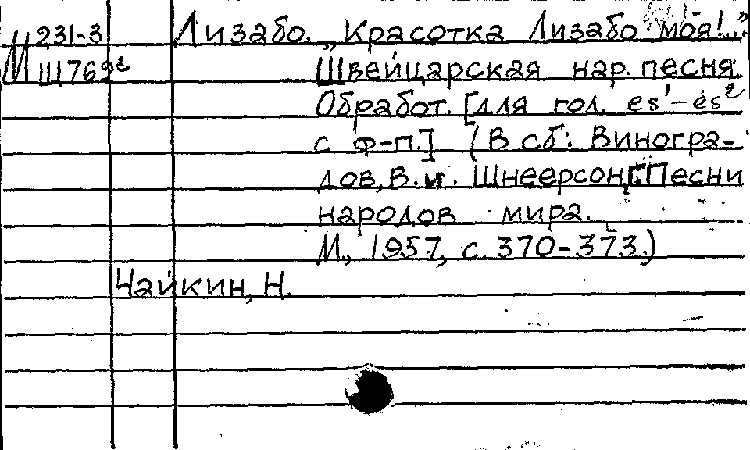 М 231-3 Лизабо. „Красотка Лизабо моя!.."
Ш769 Швейцарская нар. песня.
Обработ. [для гол. es¹-es²
с ф-п.] (В сб: Виногра-
дов, В. и. Шнеерсон, Г. Песни
народов мира.
М., 1957, с. 370-373.)
Чайкин, Н.